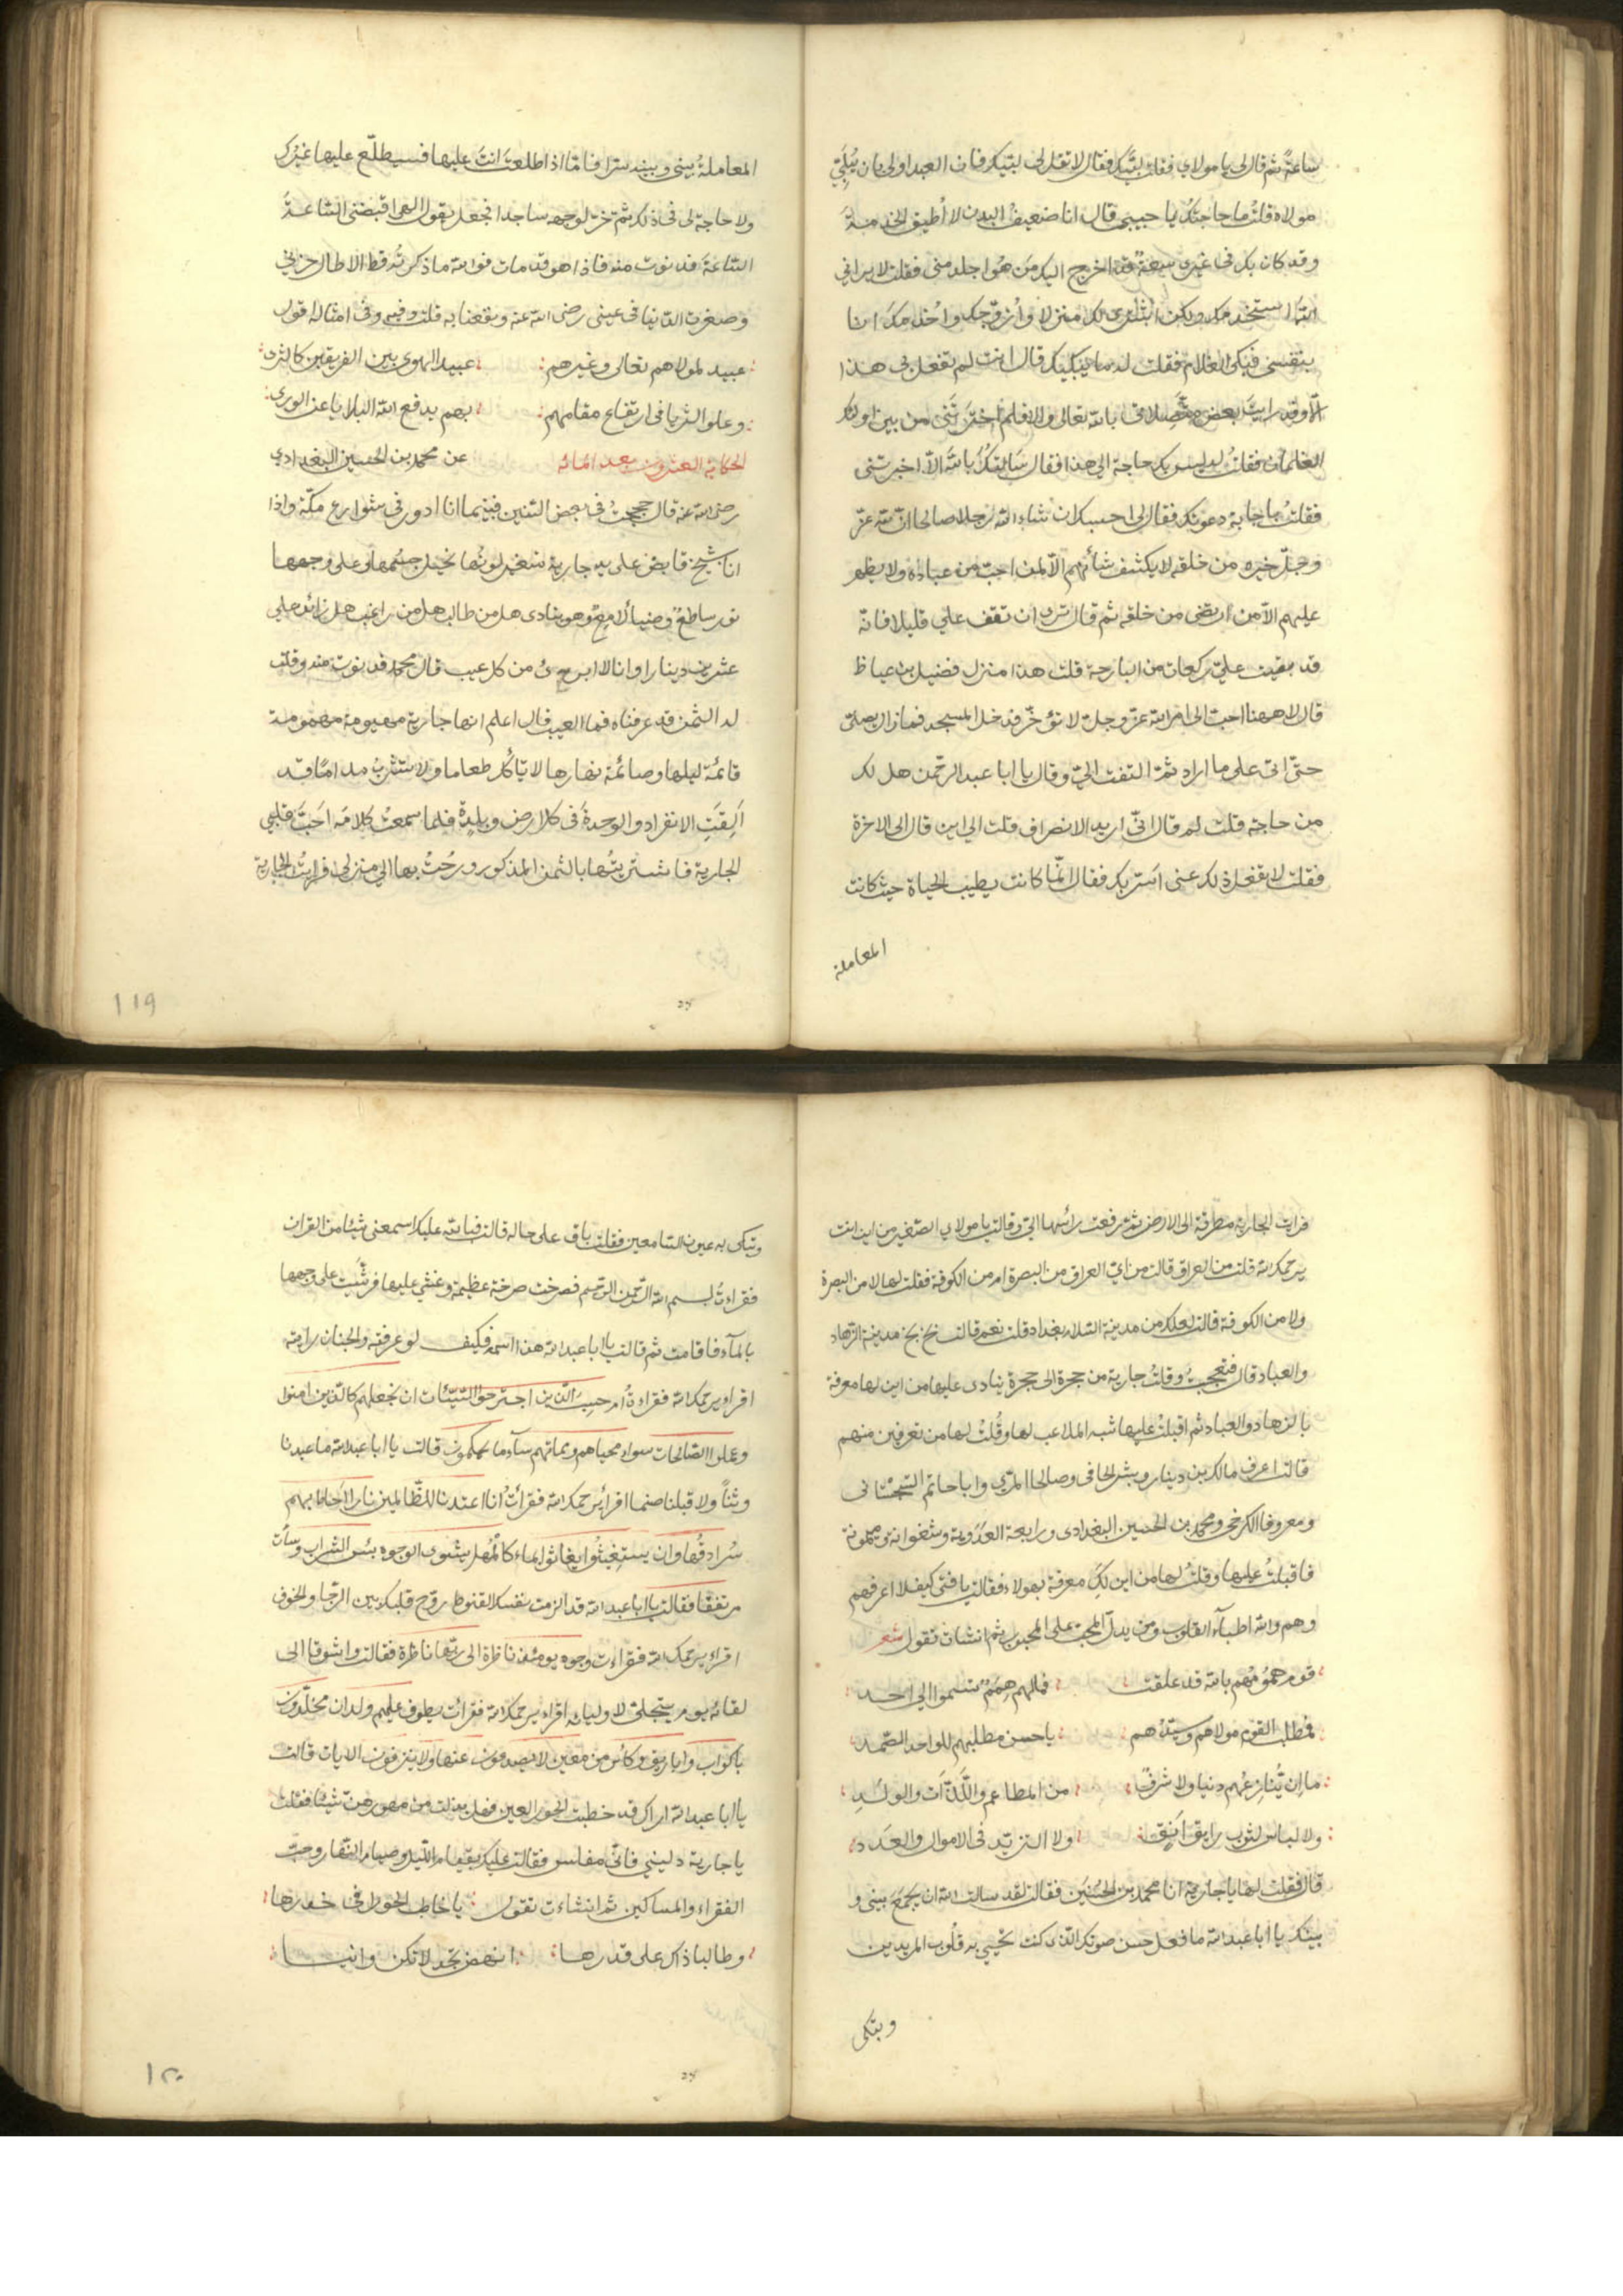 ساعةً ثم قال لى يا مولاي فقلت لبَّيك فقال لا تقل لى لبّيك فان العبد اولى بان يُلَبِّيَ
مولاه قلتُ ما حاجتكُ يا حبيبى قال انا ضعيفُ البدن لا أُطيق الخدمةَ
وقد كان لك فى غيرى سعةٌ قد اخرج اليك مَن هُو اجلد منى فقلت لا يرانى
اللّه استخدمك ولكن اشترى لك منزلا وأُزوّجك واخدمك انا
بنفسى فبكى الغلام فقلت له ما يُبكيك قال انت لم تفعل بى هذا
الاّ وقد رايتَ بعض متّصلاتى باللّه تعالى والا فلم اخترتَنى من بين اولئك
الغلمان فقلتُ له ليس بك حاجة الى هذا فقال سَالتكُ باللّه الاّ اخبرتنى
فقلتُ باجابة دعوتك فقال لى احسبك ان شاء اللّه رجلا صالحا انّ للّه عزّ
وجلّ خيره من خلقه لا يكشف شأنهم الاّ لمن احبّ من عباده ولا يظهر
عليهم الاّ من ارتضى من خلقه ثم قال ترى ان تقف علي قليلا فانّه
قد بقيت عليّ ركعات من البارحة قلت هذا منزل فضيل بن عياظ
قال لا ههنا احب الى امر اللّه عزّ وجلّ لا نؤخّر فدخل المسجد فما زال يصلّى
حتّى اتى على ما اراد ثمّ التفت الىّ وقال يا ابا عبد الرحمن هل لك
من حاجة قلت لم قال انّى اريد الانصراف قلت الى اين قال الى الاخرة
فقلت لا تفعل ذلك عنى اسَر بك فقال انّما كانت يطيب الحياة حيث كانت
المعاملة
المعاملةُ بينى وبينه سرا فامّا اذا اطلعتَ انتَ عليها فسيطلّع عليها غيرُك
ولا حاجة لى فى ذلك ثم خرّ لوجهه ساجدا فجعل يقول الهى اقبضنى السّاعةَ
السّاعةَ فدنوت منه فاذا هو قد مات فواللّه ما ذكرتُه قط الا طال حزنى
وصغرت الدّنيا فى عينى رضى اللّه عنه ونفعنا به قلت وفيه وفى امثاله اقول
عبيد لمولاهم تعالى وغيرهم عبيد الهوى بين الفريقين كالثرى
وعلو الثريا فى ارتفاع مقامهم بهم يدفع اللّه البلايا عن الورى
الحكاية العشرون بعد المائه عن محمد بن الحسين البغدادي
رضى اللّه عنه قال حججتُ فى بعض السّنين فبينما انا ادور فى شوارع مكّة واذا
انا بشيخ قابض على يد جارية متغيّر لونُها نحيل جسمُها وعلى وجهها
نور ساطعٌ وضياءٌ لامعٌ وهو ينادى هل من طالب هل من راغب هل زائد على
عشرين دينارا وانا لابراء من كل عيب قال محمد فدنوت منه وقلت
له الثمن قد عرفناه فما العيب قال اعلم انها جارية مهيومة مهمومة
قائمة ليلها وصائمة نهارها لا تاكُل طعاما ولا تشربُ مداما وقد
اَلِفَتِ الانفراد والوحدةَ فى كل ارض وبلدةٍ فلما سمعتُ كلامَه احَبَّ قلبى
الجارية فاشتريتُها بالثمن المذكور ورُحتُ بها الى منزلى فرايتُ الجارية
119
فرايت الجارية مطرقة الى الارض ثم رفعت راسُها الىّ وقالت يا مولاي الصّغير من اين انت
يرحمك اللّه قلت من العراق قالت من اىّ العراق من البصرة ام من الكوفة فقلت لها لا من البصرة
ولا من الكوفة قالت لعلك من مدينة السّلام بغداد قلت نعم قالت بخ بخ مدينة الزّهاد
والعباد قال فتعجبتُ وقلتُ جارية من حجرة الى حجرة ينادى عليها من اين لها معرفة
بالزهاد والعباد ثم اقبلتُ عليها شبه الملاعب لها وقُلتُ لها من تعرفين منهم
قالت اعرف مالك بن دينار وبشر الحافى وصالحا المرّي وابا حاتم السّجستانى
ومعروفا الكرخى ومحمد بن الحسين البغدادى ورابعة العدَويّة وشعوانة وميمونة
فاقبلتُ عليها وقلتُ لها من اين لكِ معرفة بهولاء فقالت يا فتى كيف لا اعرفهم
وهم واللّه اطبآء القلوب ومن يدلّ المحبّ على المحبوب ثم انشات تقول شعر
قوم همُومُهم باللّه قد علقت فما لهم هِمَمٌ تسموا الى احد
فمطلب القوم مولاهم وسيّدُهم يا حسن مطلبهم للواحد الصّمد
ما اِن يُنازعُهم دنيا ولا شرفٌ من المطاعم واللَّذّات والولَدِ
ولا لباس لثوب رايق انيق ولا التزيّد فى الاموال والعَدد
قال فقلت لها يا جارية انا محمد بن الحُسَين فقالت لقد سالت اللّه ان يجمعَ بينى و
بينك يا ابا عبد اللّه ما فعل حسن صوتك الذى كنت تحيي به قُلوب المريدين
وتبكى
وتبكى به عيون السّامعين فقلت باقٍ على حاله قالت فباللّه عليك اسمعنى شيئا من القران
فقراءتُ بسم اللّه الرّحمن الرّحيم فصرخت صرخة عظيمة وغشي عليها فرشّيت على وجهها
بالمآء فافاقت ثم قالت يا ابا عبد اللّه هذا اسمه فكيف لو عرفته والجنان رايته
اقراء يرحمك اللّه فقراءتُ ام حسِبَ الّذين اجترحوا السّيّئات ان نجعلهم كالّذين امنوا
وعملوا الصّالحات سواء محياهم ومماتهم سآء ما يحكمون قالت يا ابا عبد اللّه ما عبدنا
وثناً ولا قبلنا صنما اقرأ يرحمك اللّه فقرأتُ انا اعتدنا للظّالمين نارا احاط بهم
سُرادقُها وان يستغيثُوا يغاثوا بماء كالمُهل يشوى الوجوه بئس الشراب وساءت
مرتفقا فقالت يا ابا عبد اللّه قد الزمت نفسك القنوط روّح قلبك بين الرّجا والخوف
اقراء يرحمك اللّه فقراءت وجوه يومئذ ناظرة الى ربّها ناظرة فقالت واشوقا الى
لقائه يوم يتجلّى لاوليائه اقراء يرحمك اللّه فقرأت يطوف عليهم ولدان مخلّدون
باكواب واباريق وكاس من معين لا يصدعون عنها ولا ينزفون الايات قالت
يا ابا عبد اللّه اراك قد خطبت الحور العين فهل بذلت من مهورهنّ شيئا فقلت
يا جارية دلينى فانّى مفلس فقالت عليك بقيام اللّيل وصيام النّهار وحبّ
الفقراء والمساكين ثم انشاءت تقول يا خاطب الحور فى خدرها
وطالبا ذاك على قدرها انهض بجدّ لا تكن وانيا
120